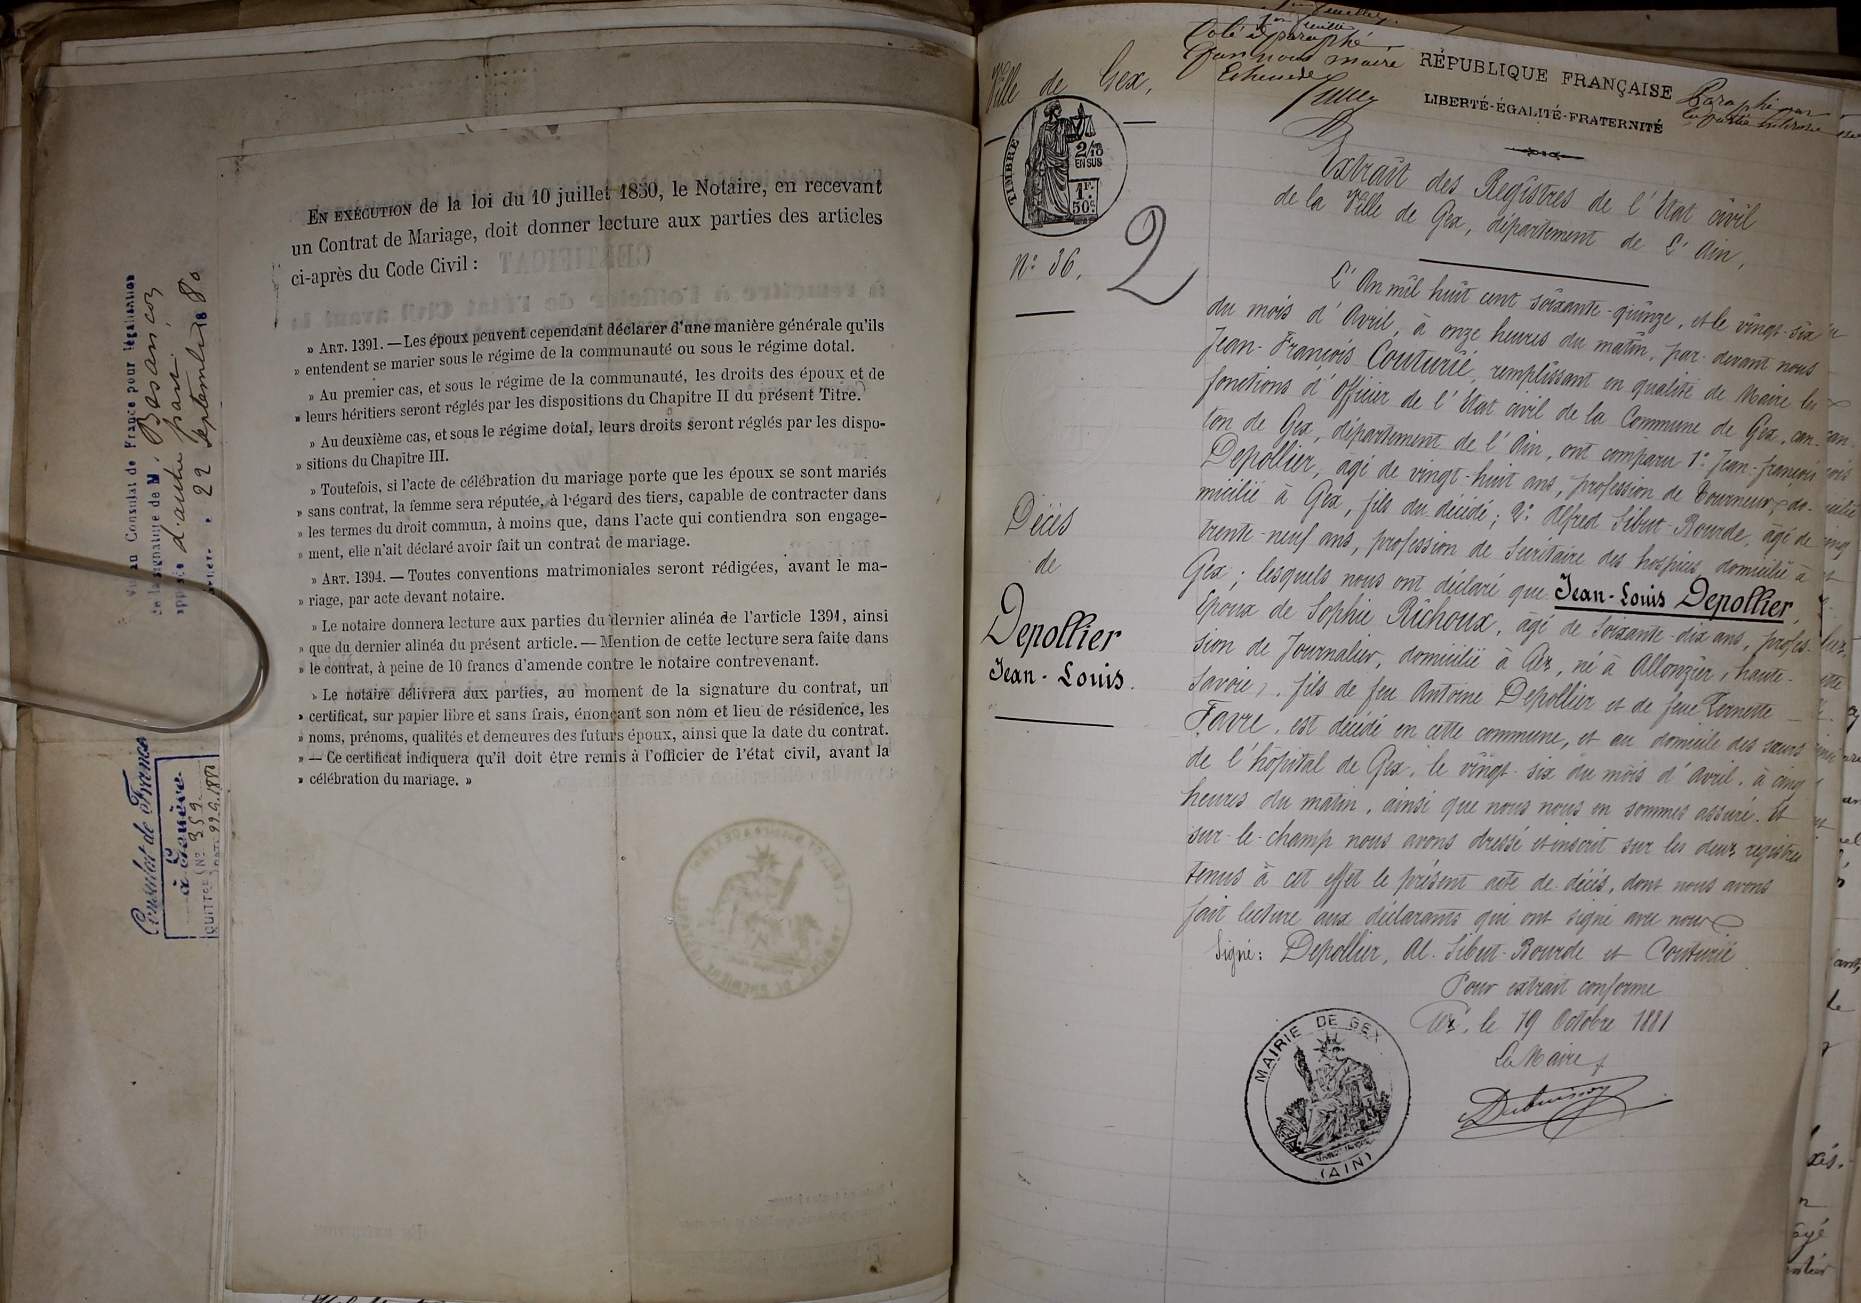 EN EXÉCUTION de la loi du 10 juillet 1850, le Notaire, en recevant
un Contrat de Mariage, doit donner lecture aux parties des articles
ci-après du Code Civil :
» ART. 1391. — Les époux peuvent cependant déclarer d'une manière générale qu'ils
» entendent se marier sous le régime de la communauté ou sous le régime dotal.
» Au premier cas, et sous le régime de la communauté, les droits des époux et de
» leurs héritiers seront réglés par les dispositions du Chapitre II du présent Titre.
» Au deuxième cas, et sous le régime dotal, leurs droits seront réglés par les dispo-
» sitions du Chapitre III.
» Toutefois, si l'acte de célébration du mariage porte que les époux se sont mariés
» sans contrat, la femme sera réputée, à l'égard des tiers, capable de contracter dans
» les termes du droit commun, à moins que, dans l'acte qui contiendra son engage-
» ment, elle n'ait déclaré avoir fait un contrat de mariage.
» ART. 1394. — Toutes conventions matrimoniales seront rédigées, avant le ma-
» riage, par acte devant notaire.
» Le notaire donnera lecture aux parties du dernier alinéa de l'article 1391, ainsi
» que du dernier alinéa du présent article. — Mention de cette lecture sera faite dans
» le contrat, à peine de 10 francs d'amende contre le notaire contrevenant.
» Le notaire délivrera aux parties, au moment de la signature du contrat, un
» certificat, sur papier libre et sans frais, énonçant son nom et lieu de résidence, les
» noms, prénoms, qualités et demeures des futurs époux, ainsi que la date du contrat.
» — Ce certificat indiquera qu'il doit être remis à l'officier de l'état civil, avant la
» célébration du mariage. »
Vu au Consulat de France pour légalisation
de la signature de M.
apposée d'autre part
22 Septembre 1880
Consulat de France
à Genève
Ville de Gex,
Coté et paraphé
par nous maire
RÉPUBLIQUE FRANÇAISE
LIBERTÉ-ÉGALITÉ-FRATERNITÉ
TIMBRE
2/10
EN SUS
1F.
50c.
Nº 36.
2
Extrait des Registres de l'Etat civil
de la Ville de Gex, département de l'Ain,
L'An mil huit cent soixante-quinze, et le vingt-six
du mois d'Avril, à onze heures du matin, par-devant nous
Jean-François Couturié, remplissant en qualité de Maire les
fonctions d'Officier de l'Etat civil de la Commune de Gex, can-
ton de Gex, département de l'Ain, ont comparu 1º Jean-françois
Depollier, âgé de vingt-huit ans, profession de Tourneur, do-
micilié à Gex, fils du décédé ; 2º Alfred Sibut-Bourde, âgé de
trente-neuf ans, profession de Secrétaire des hospices, domicilié à
Gex ; lesquels nous ont déclaré que Jean-Louis Depollier,
Epoux de Sophie Richoux, âgé de soixante-dix ans, profes-
sion de Journalier, domicilié à Gex, né à Allonzier, (haute-
Savoie), fils de feu Antoine Depollier et de feue Pernette
Favre, est décédé en cette commune, et au domicile des sœurs
de l'hôpital de Gex, le vingt-six du mois d'Avril, à cinq
heures du matin, ainsi que nous nous en sommes assuré. Et
sur-le-champ nous avons dressé et inscrit sur les deux registres
tenus à cet effet le présent acte de décès, dont nous avons
fait lecture aux déclarants qui ont signé avec nous
Signé : Depollier, Al. Sibut-Bourde et Couturié
Pour extrait conforme
Gex, le 19 Octobre 1881
Le Maire,
Décès
de
Depollier
Jean-Louis.
MAIRIE DE GEX
(AIN)